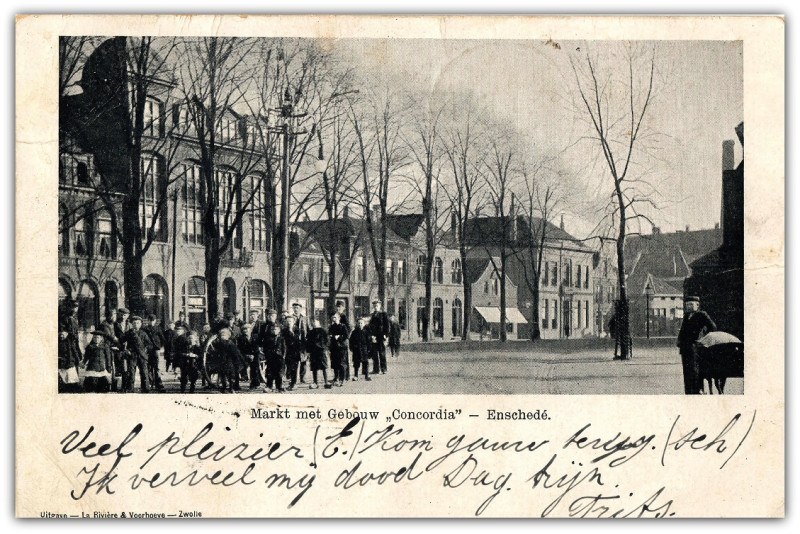 Markt met Gebouw „Concordia” — Enschedé.
Veel pleizier (E.) Kom gauw terug. (sch)
Ik verveel mij dood Dag. tijn.
Frits.
Uitgave — La Rivière & Voorhoeve — Zwolle